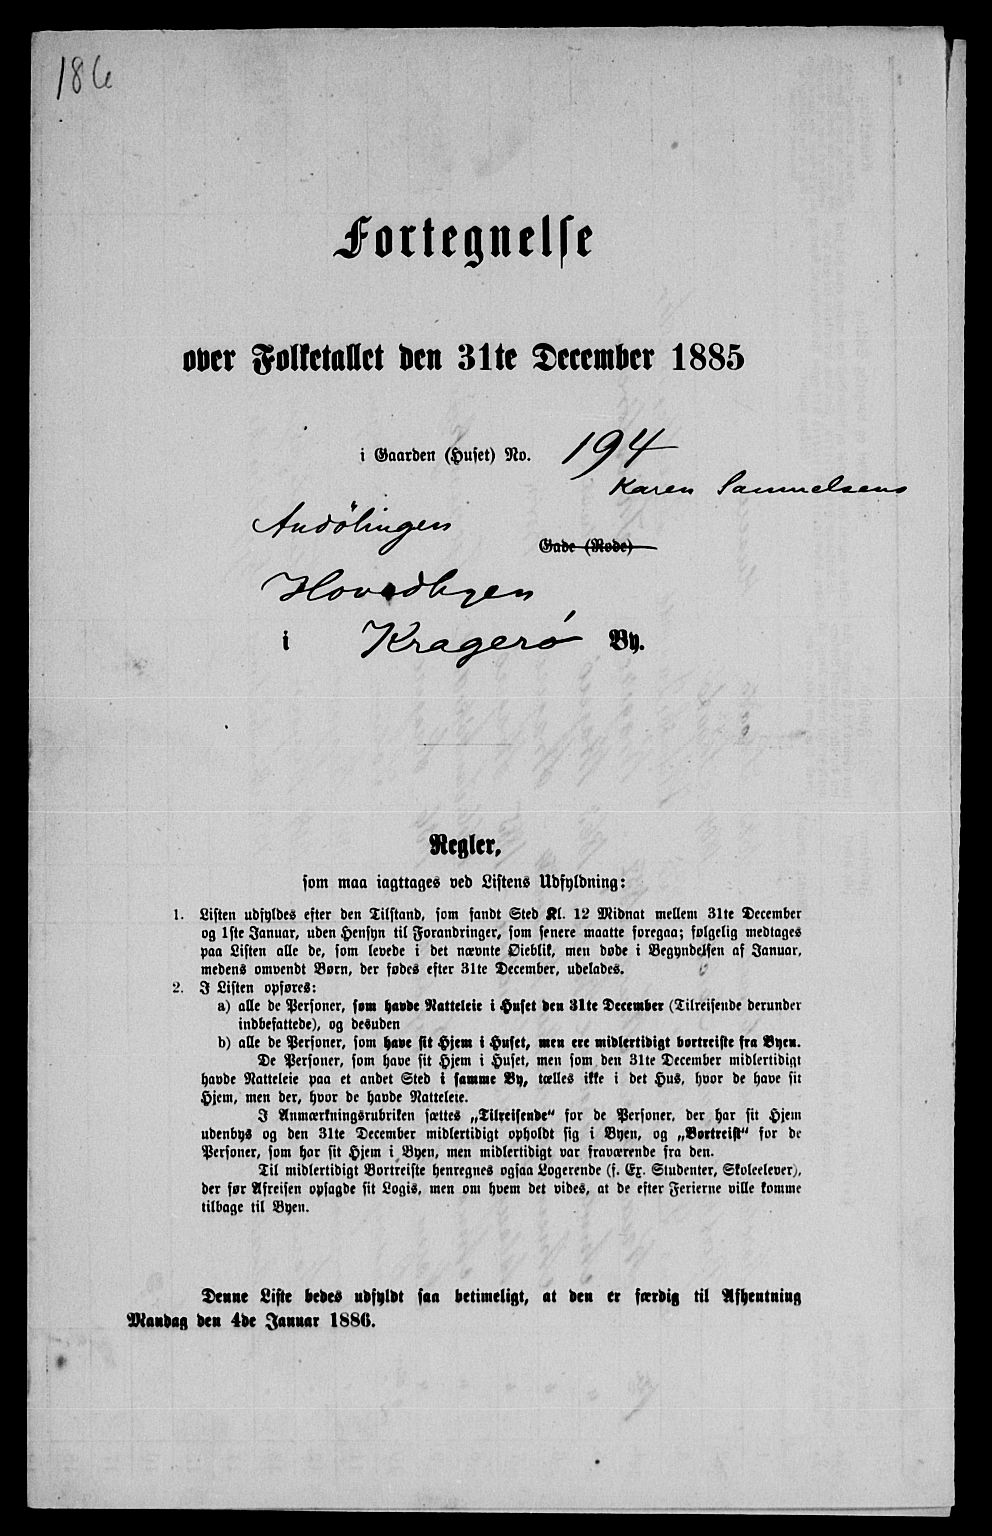 186
Fortegnelse
over Folketallet den 31te December 1885
i Gaarden (Huset) No. 194
Karen Samuelsens
Andölingen
Gade (Rode)
Hovedbyen
i Kragerø By.
Regler,
som maa iagttages ved Listens Udfyldning:
1. Listen udfyldes efter den Tilstand, som fandt Sted Kl. 12 Midnat mellem 31te December
og 1ste Januar, uden Hensyn til Forandringer, som senere maatte foregaa; følgelig medtages
paa Listen alle de, som levede i det nævnte Øieblik, men døde i Begyndelsen af Januar,
medens omvendt Børn, der fødes efter 31te December, udelades.
2. I Listen opføres:
a) alle de Personer, som havde Natteleie i Huset den 31te December (Tilreisende derunder
indbefattede), og desuden
b) alle de Personer, som have sit Hjem i Huset, men ere midlertidigt bortreiste fra Byen.
De Personer, som have sit Hjem i Huset, men som den 31te December midlertidigt
havde Natteleie paa et andet Sted i samme By, tælles ikke i det Hus, hvor de have sit
Hjem, men der, hvor de havde Natteleie.
I Anmærkningsrubriken sættes „Tilreisende" for de Personer, der har sit Hjem
udenbys og den 31te December midlertidigt opholdt sig i Byen, og „Bortreist" for de
Personer, som har sit Hjem i Byen, men midlertidigt var fraværende fra den.
Til midlertidigt Bortreiste henregnes ogsaa Logerende (f. Ex. Studenter, Skoleelever),
der før Afreisen opsagde sit Logis, men om hvem det vides, at de efter Ferierne ville komme
tilbage til Byen.
Denne Liste bedes udfyldt saa betimeligt, at den er færdig til Afhentning
Mandag den 4de Januar 1886.